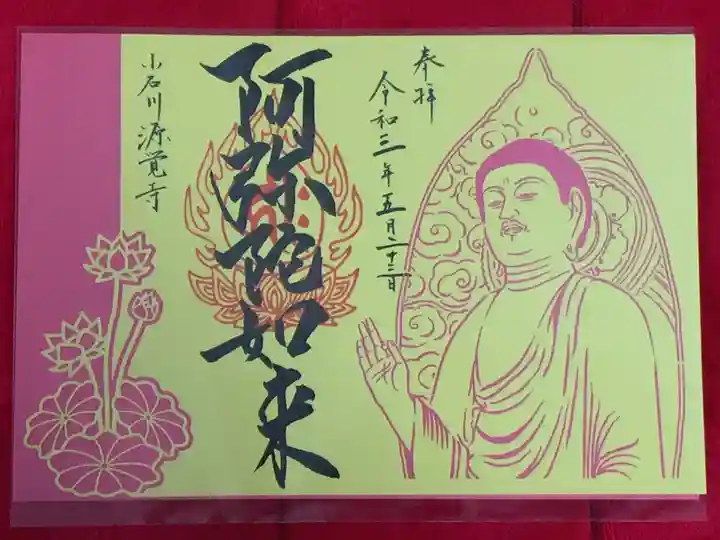 奉拝
令和三年五月二十三日
阿弥陀如来
小石川源覚寺